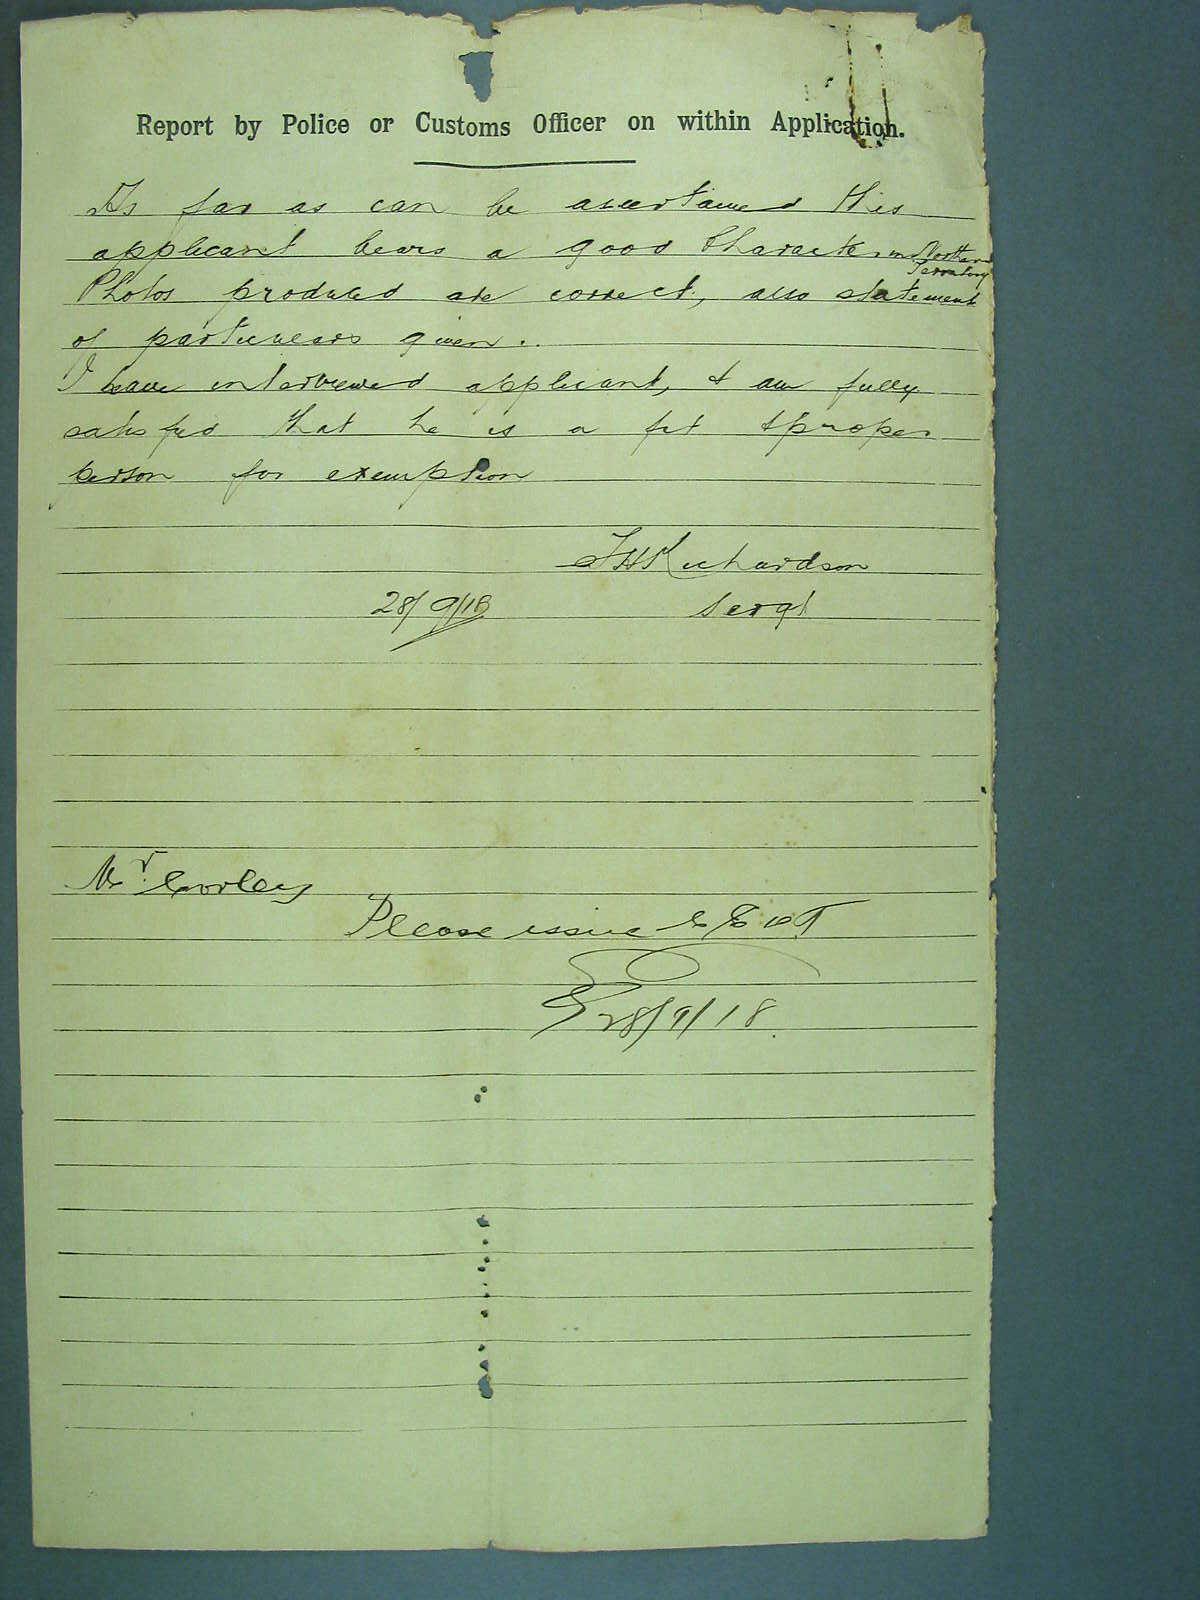 Report by Police or Customs Officer on within Application.
As far as can be ascertained this
applicant bears a good Character in Northern Territory
Photos produced are correct, also statement
of particulars given..
I have interviewed applicant, & am fully
satisfied that he is a fit & proper
person for exemption
Richardson
28/9/18 Sergt
Mr.
Please issue C E D T
28/9/18.